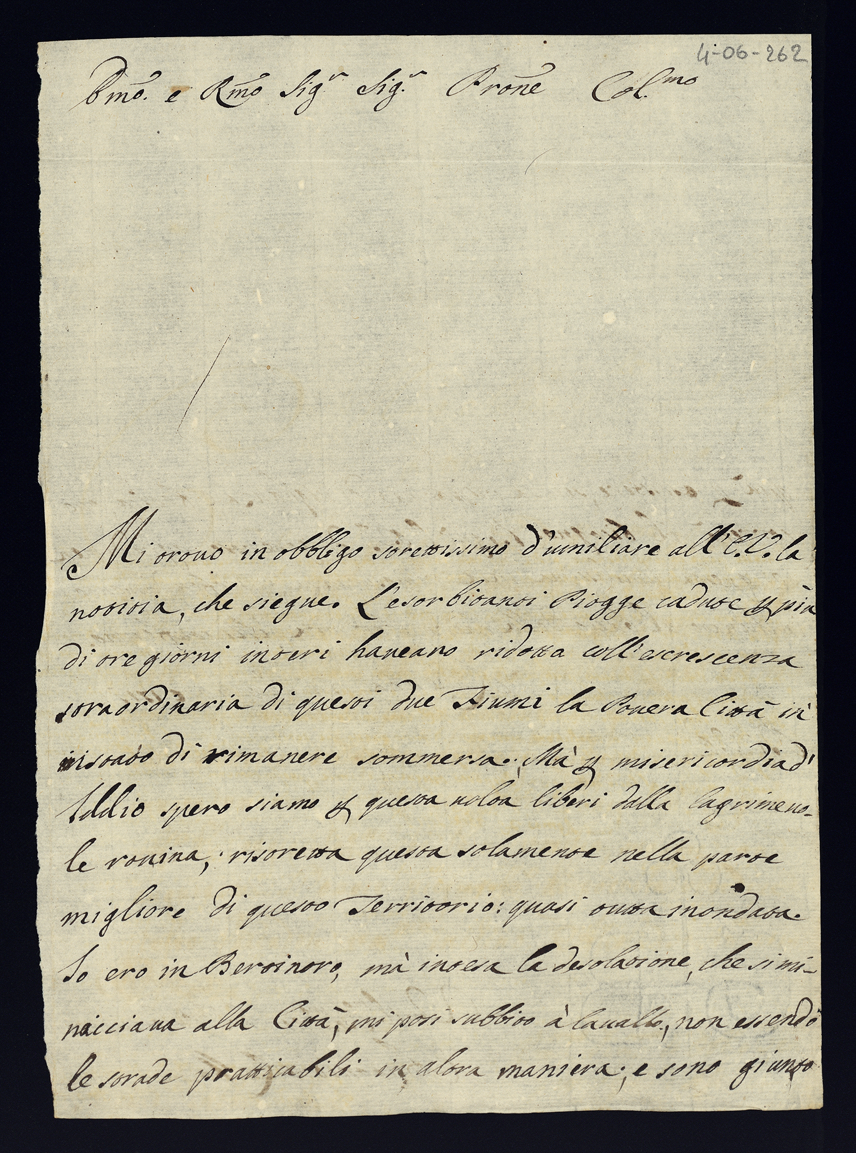 4-06-262
Emo. e Rmo Sigr Sigr. Prone Col.mo
Mi trovo in obbligo strettissimo d'umiliare all'E.V. la
notitia, che siegue. L'esorbitanti Piogge cadute per più
di tre giorni interi haveano ridotta coll'escrescenza
straordinaria di questi due Fiumi la Povera Città in
istato di rimanere sommersa. Mà per misericordia d'
Iddio spero siamo per questa volta liberi dalla lagrimevo-
le rovina, ristretta questa solamente nella parte
migliore di questo Territorio: quasi tutta inondata.
Io ero in Bertinoro, mà intesa la desolatione, che si mi-
nacciava alla Città, mi posi subbito à Cavallo, non essendo
le strade pratticabili in altra maniera; e sono giunto